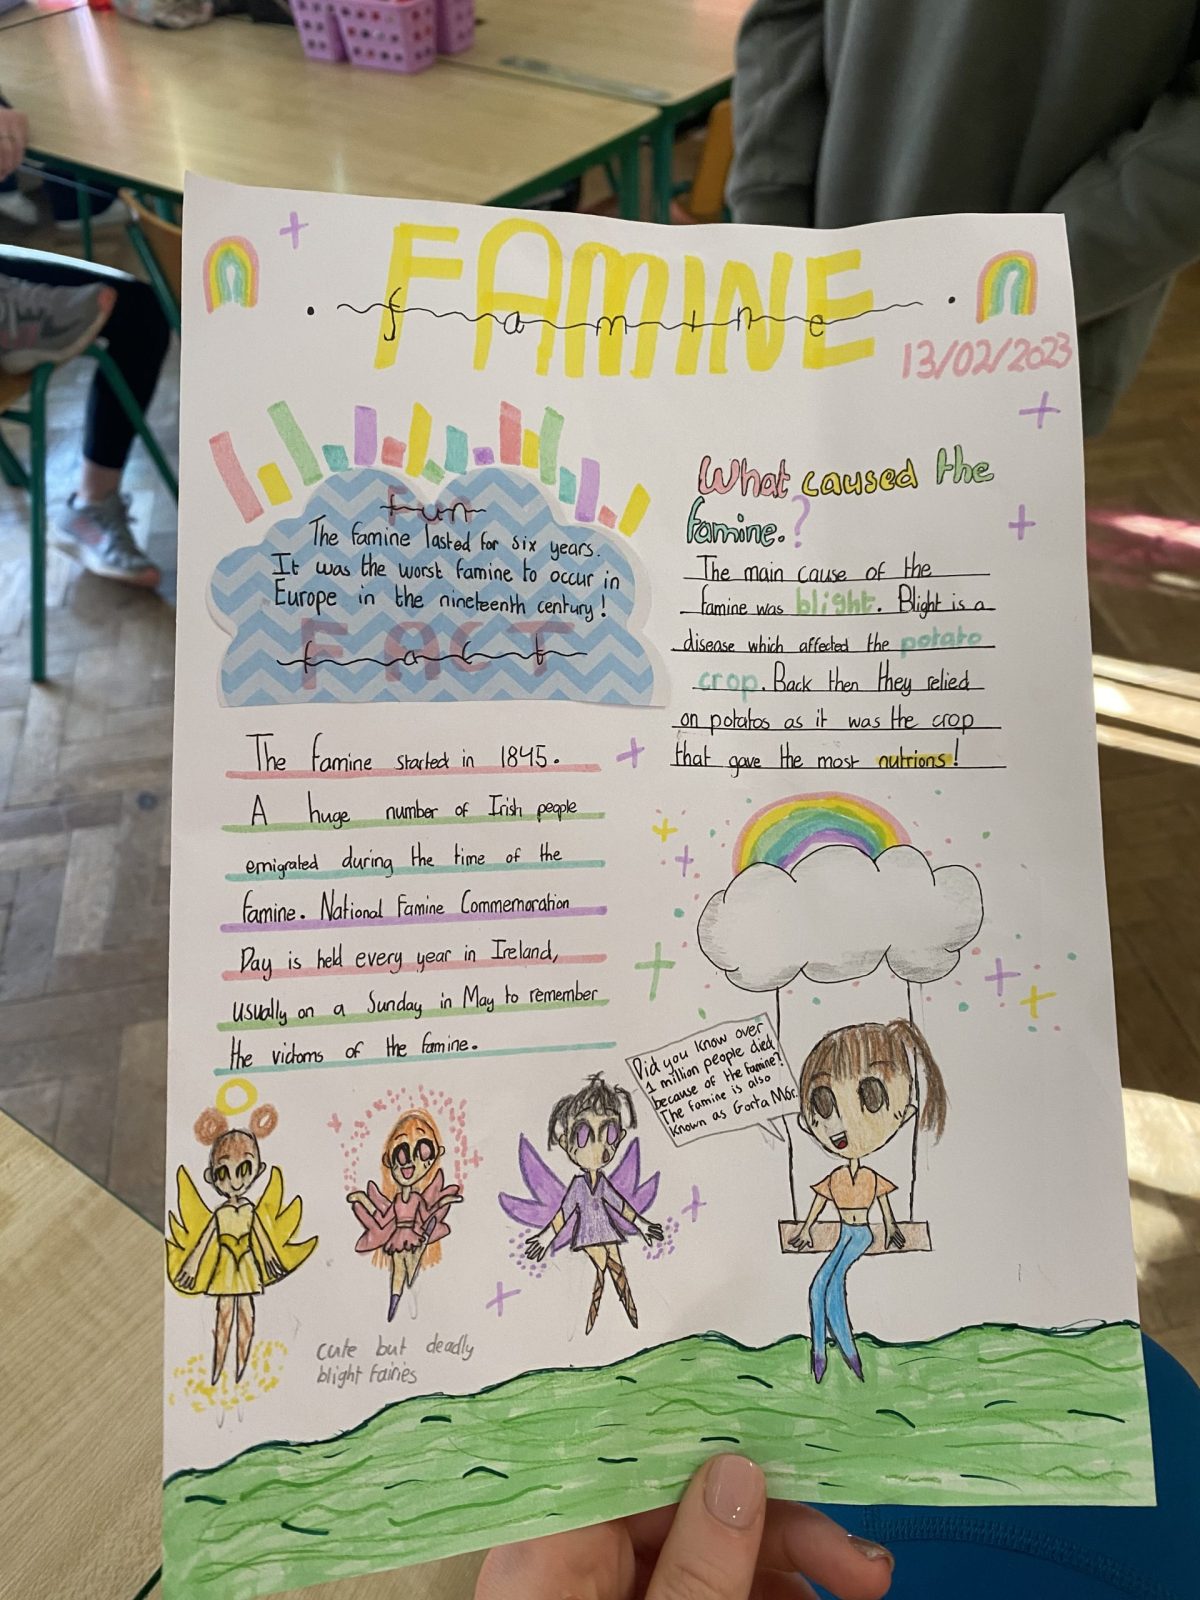 FAMINE
famine
13/02/2023
fun
The famine lasted for six years.
It was the worst famine to occur in
Europe in the nineteenth century!
FACT
fact
What caused the
famine.?
The main cause of the
famine was blight. Blight is a
disease which affected the potato
crop. Back then they relied
on potatos as it was the crop
that gave the most nutrions!
The famine started in 1845.
A huge number of Irish people
emigrated during the time of the
famine. National Famine Commemoration
Day is held every year in Ireland,
usually on a Sunday in May to remember
the victoms of the famine.
Did you know over
1 million people died
because of the famine?
The famine is also
known as Gorta Mór.
cute but deadly
blight fairies